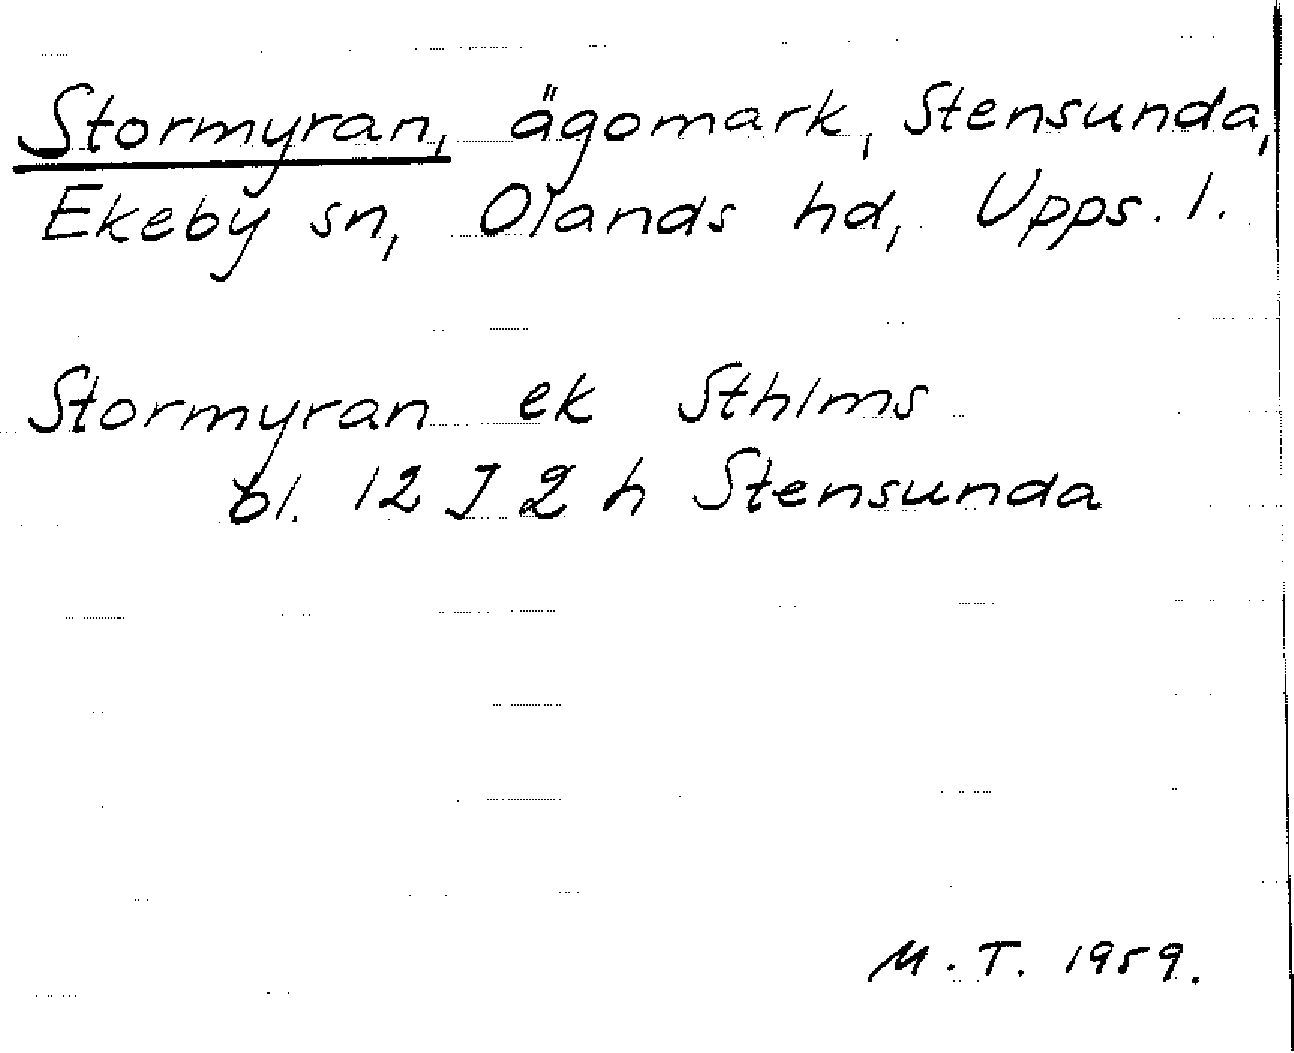 Stormyran, ägomark, Stensunda,
Ekeby sn, Olands hd, Upps. l.
Stormyran ek Sthlms
bl. 12 I 2 h Stensunda
M.T. 1959.